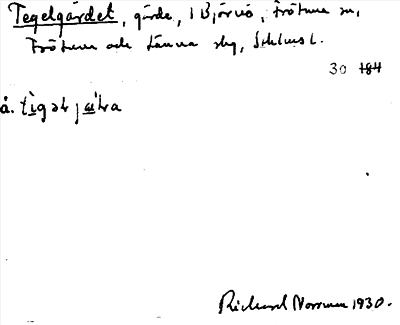 Tegelgärdet, gärde, i Björnö, Frötuna sn,
Frötuna och Länna skg, Sthlms l.
30 184
å.
Richard Norrman 1930.